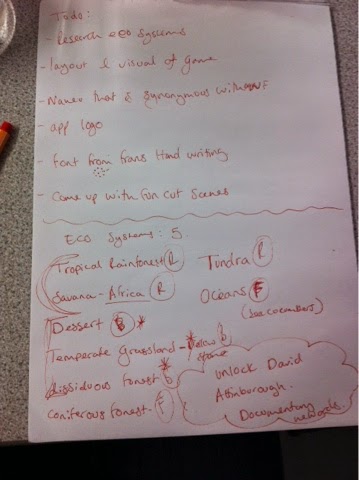 Todo:
- Research eco systems
- layout & visual of game
- Names that & synonymous with
- app logo
- font from frans Hand writing
- Come up with fun cut scenes
Eco Systems: 5
Tropical Rainforest R
Tundra R
Savana - Africa R
Oceans F
(sea cucumbers)
Dessert
Temperate Grassland -
Dissiduous forest
coniferous forest F
Unlock David
Attinborough.
Documentary